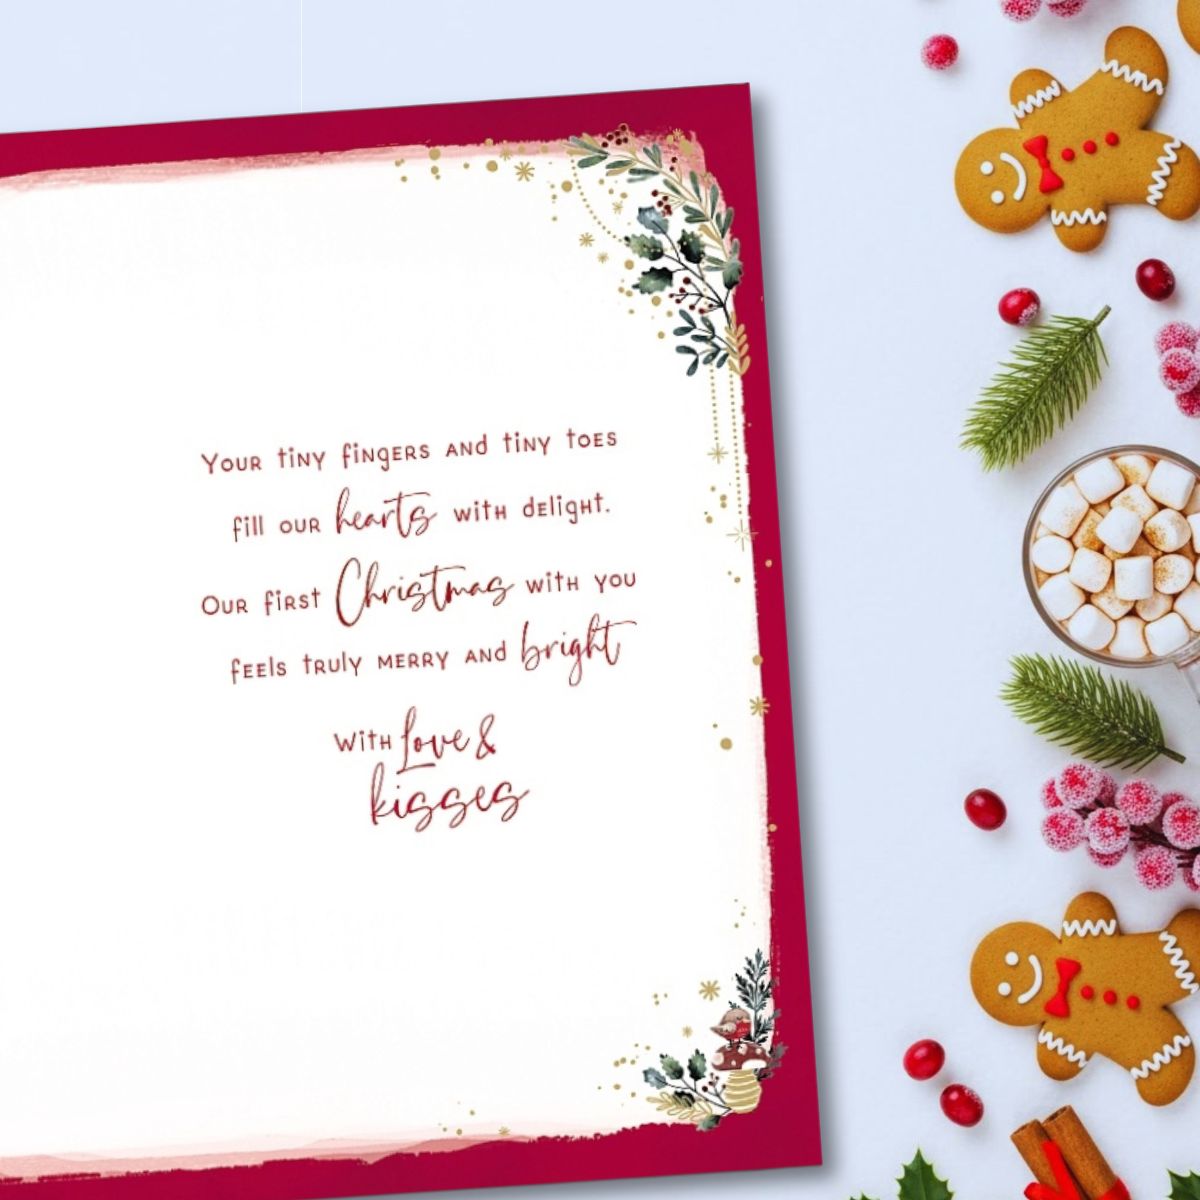 Your tiny fingers and tiny toes
fill our hearts with delight.
Our first Christmas with you
feels truly merry and bright
With Love &
kisses